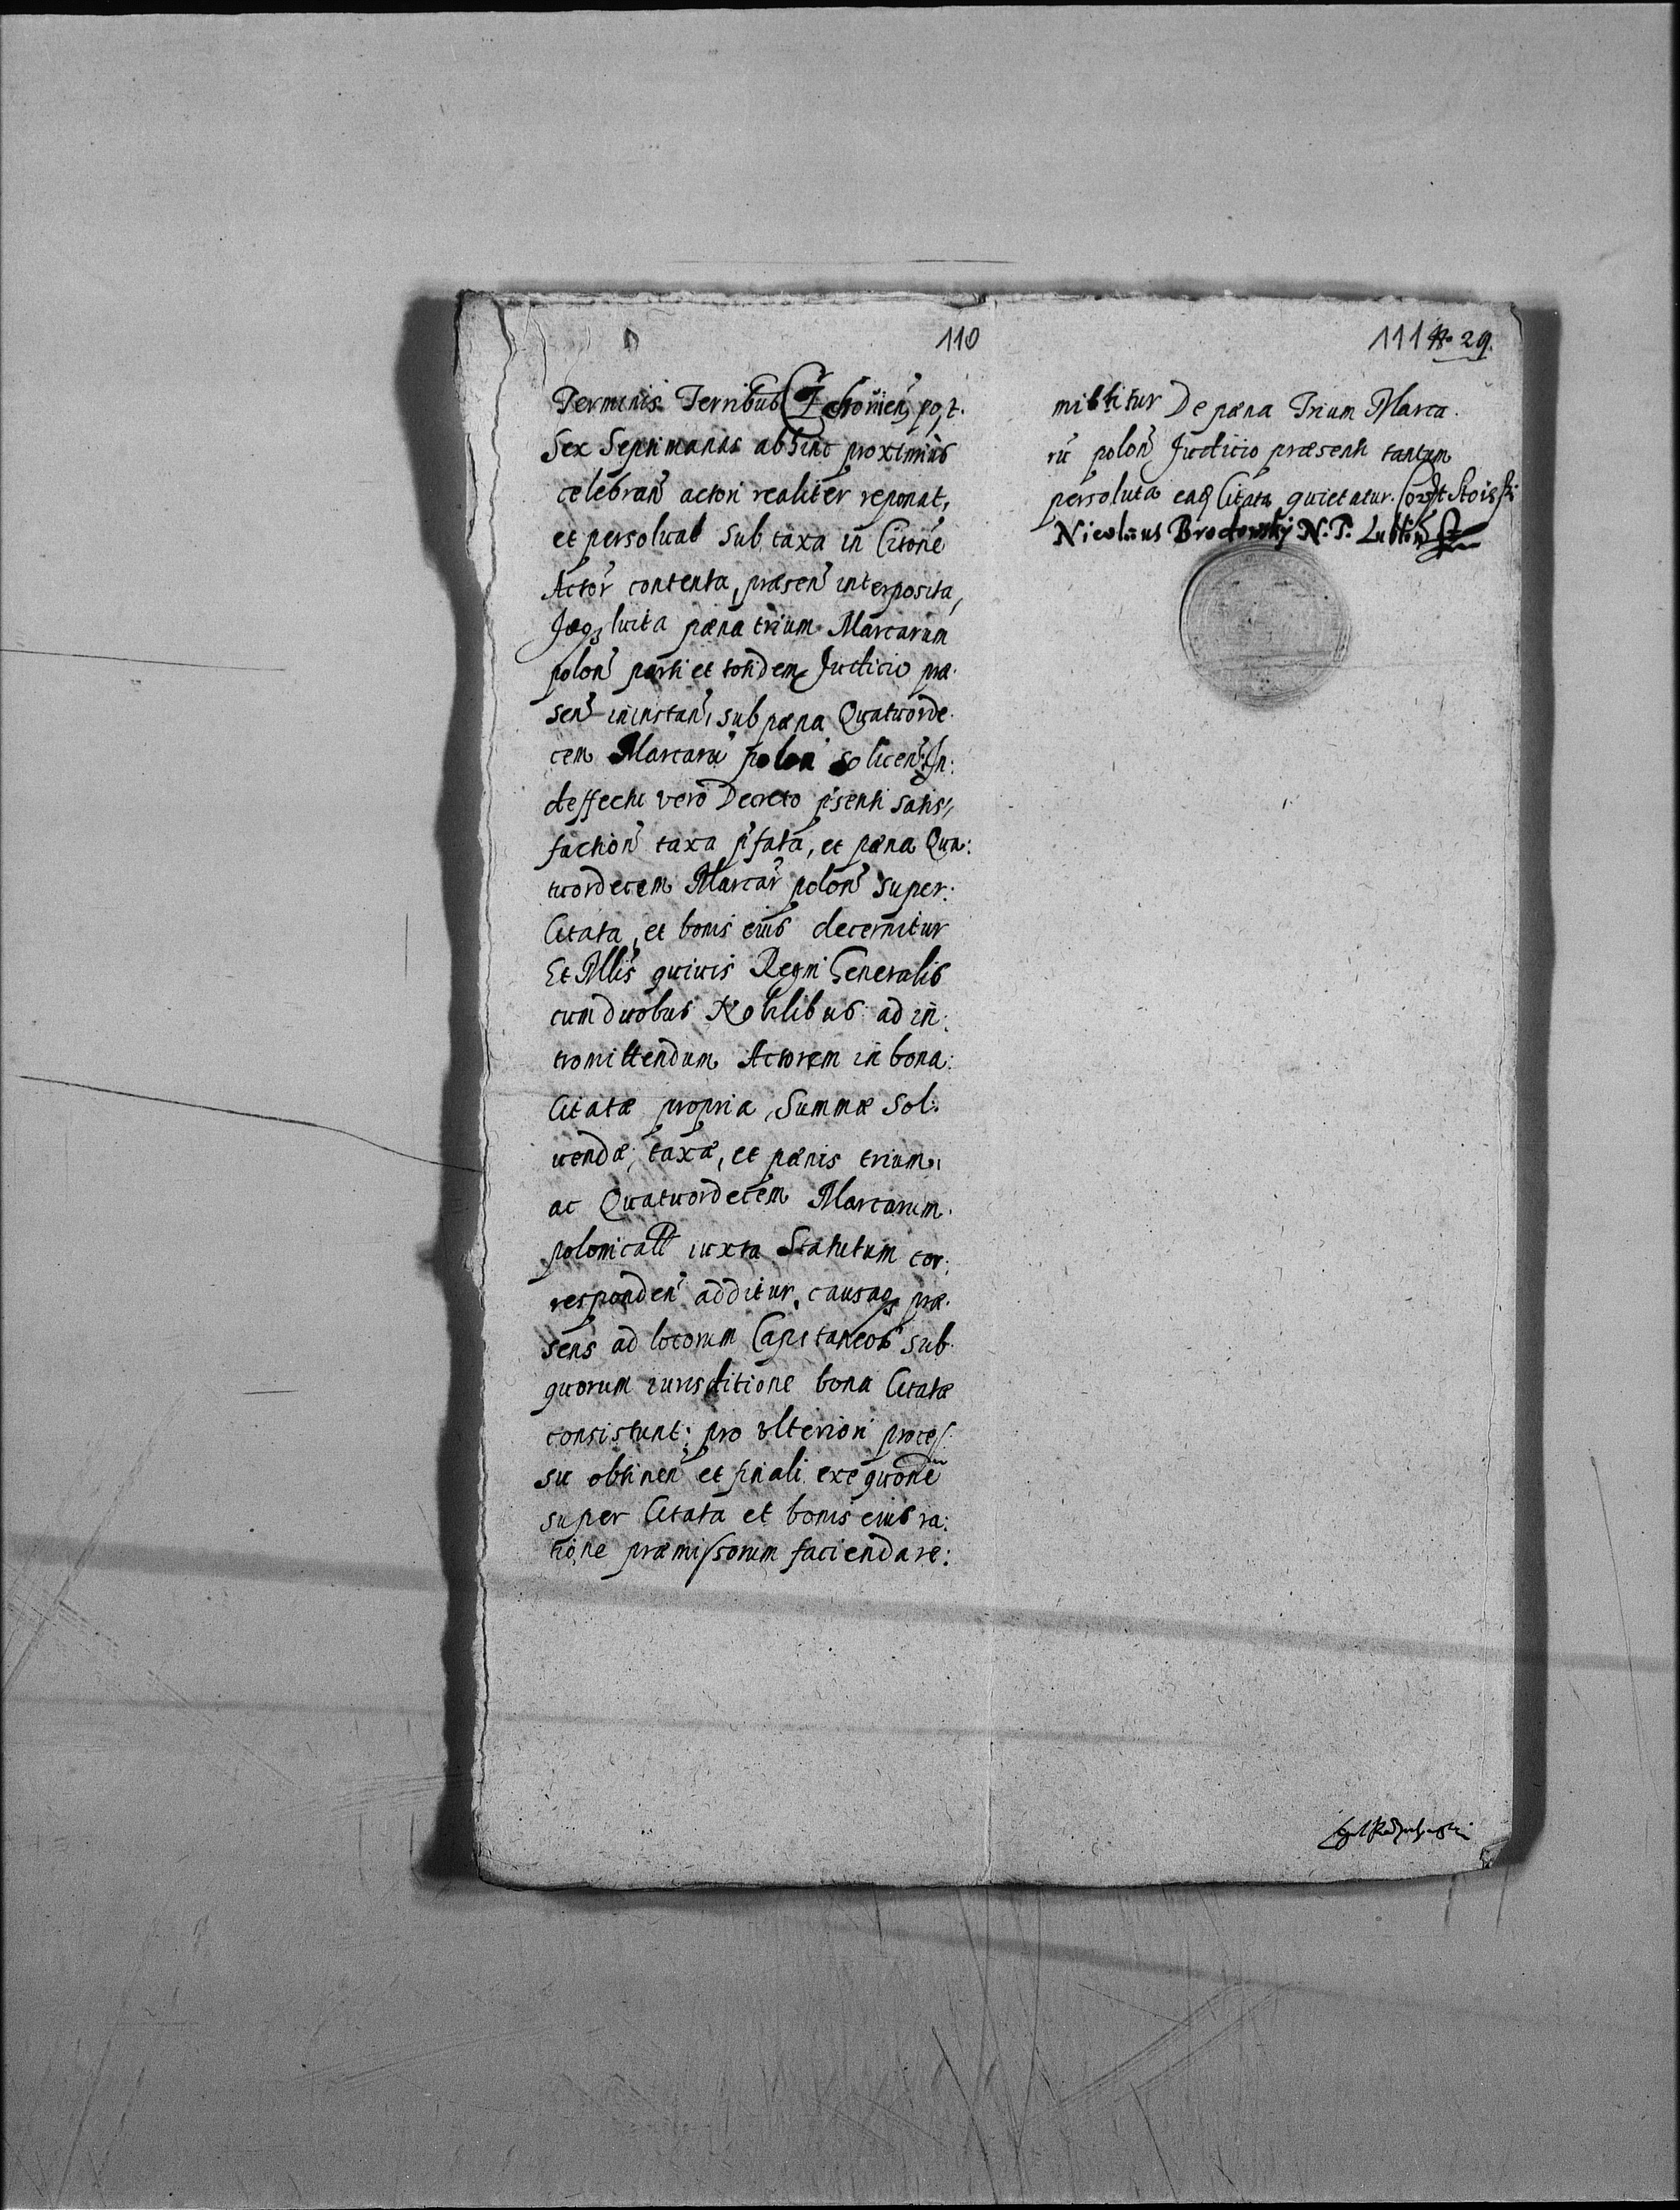 110
Terminis Terribus Czchouien̄ post.
Sex Septimanas abhinc proximius
celebran̄ actori realiter reponat,
et persoluat Sub taxa in Citōne
Actor̄ contenta, præsen̄ interposita,
Jāqȝ luita pæna trium Marcarum
polon̄ parti et totidem Judicio præ.
sen̄ in instan̄, sub pæna Quatuorde.
cem Marcarū polon̄ so licen̄. In:
deffectu vero Decreto p̄senti satis,
faction̄ taxa p̄fata, et pæna Qua:
tuordecem Marcar̄ polon̄ super:
Citata, et bonis eius decernitur
Et Mlis̄ quiuis Regni Generalis
cum duobus Nobilibus ad in:
tromittendum Actorem in bona:
Citatæ propria, Summæ Sol:
uendæ, taxæ, et pænis trium,
ac Quatuordecem Marcarum.
polonicall iuxta Statutum cor:
responden̄ additur, causaqȝ præ.
sens ad locorum Capitaneos sub.
quorum iurisditione bona Citatæ
consistunt: pro vlteriori proces:
su obtinen̄ et finali exequōnē
super Citata et bonis eius ra:
tione præmissorum facienda re:
111 No 29.
mittitur De pæna Trium Marca.
rū polon̄ Judicio præsenti tantum
persoluta eaqȝ Citata quietatur.
Nicolaus Brodowskj N. T. Lublin̄